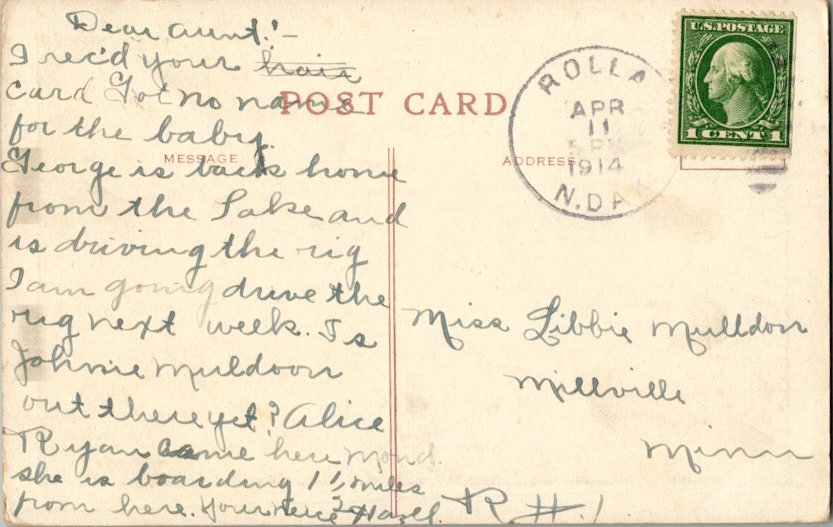 Dear Aunt!-
I rec'd your hair
card Got no name
for the baby.
George is back home
from the Lake and
is driving the rig
I am going drive the
rig next week. Is
Johnie Muldoon
out there yet? Alice
Ryan came here Mond.
she is boarding 1 1/2 miles
from here. Your niece Hazel.
POST CARD
MESSAGE
ADDRESS
ROLLA
APR
11
5 PM
1914
N. DAK
U.S. POSTAGE
1 CENT 1
Miss Libbie Mulldoon
Millville
Minn
R #. 1